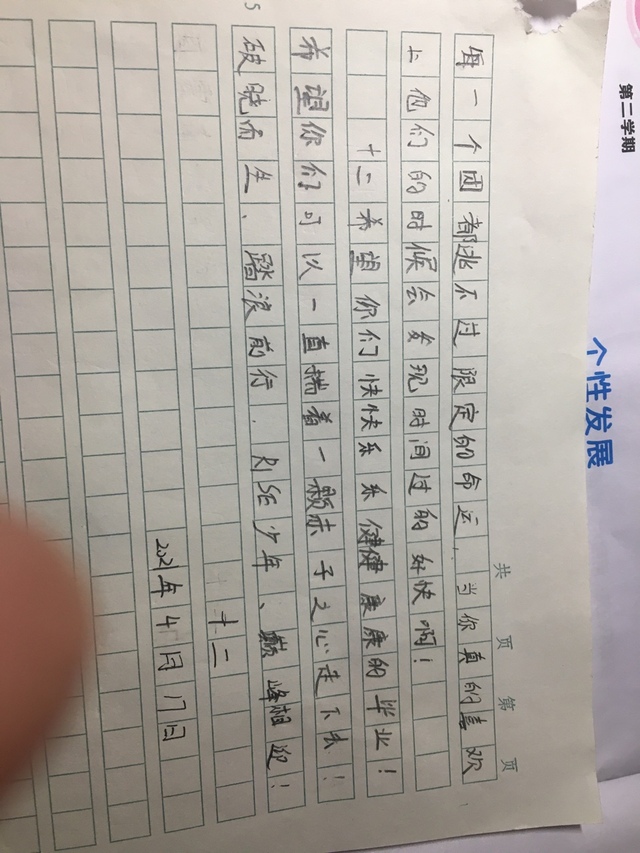 第二学期
个性发展
共 页 第 页
每一个团都逃不过限定的命运,当你真的喜欢
上他们的时候会发现时间过的好快啊!
十二希望你们快快乐乐健健康康的毕业!
希望你们可以一直揣着一颗赤子之心走下去!
破晓而生、踏浪前行.RISE少年、巅峰相迎!
十二
2021年4月17日
5